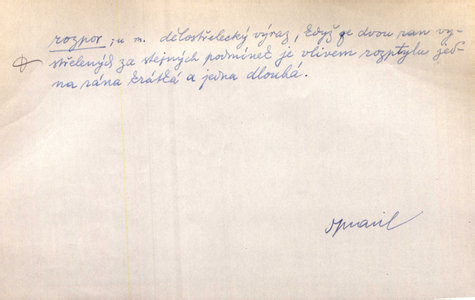 rozpor, -u m. dělostřelecký výraz, když ze dvou ran vy-
střelených za stejných podmínek je vlivem rozptylu jed-
na rána krátká a jedna dlouhá.